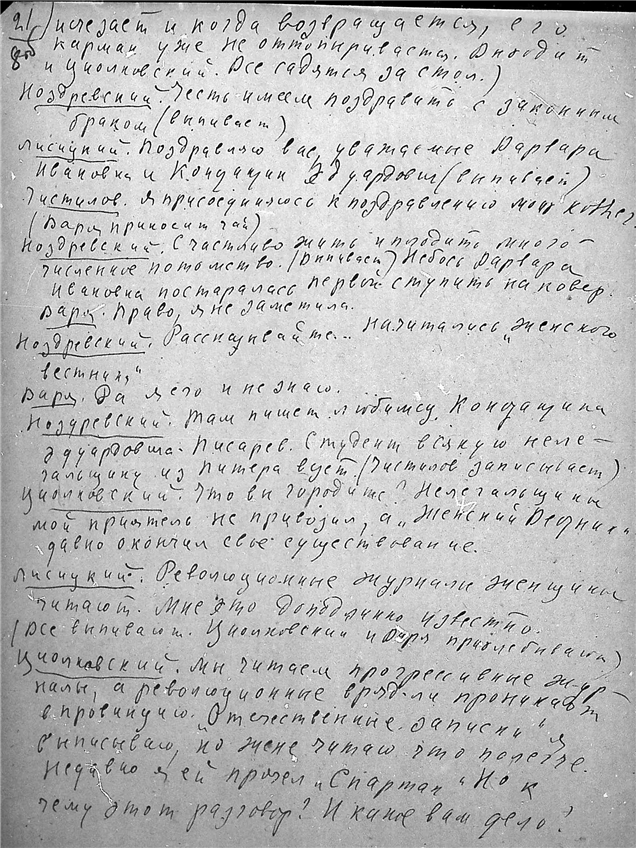 21/ исчезает и когда возвращается, его
карман уже не оттопыривается. Входит
и Циолковский. Все садятся за стол.)
Ноздревский. Честь имеем поздравить с законным
браком (выпивает)
Лисицкий. Поздравляю вас, уважаемые Варвара
Ивановна и Константин Эдуардович (выпивает)
Чистилов. Я присоединяюсь к поздравлению моих коллег.
(Варя приносит чай)
Ноздревский. Счастливо жить и плодить много-
численное потомство. (Выпивает) Небось Варвара
Ивановна постаралась первой ступить на ковер.
Варя. Право, я не заметила.
Ноздревский. Рассказывайте... Начитались "Женского
вестника"
Варя. Да я его и не знаю.
Ноздревский. Там пишет любимец Константина
Эдуардовича - Писарев. Студент всякую неле-
гальщину из Питера везет (Чистилов записывает)
Циолковский. Что вы городите? Нелегальщины
мой приятель не привозил, а "Женский Вестник"
давно окончил свое существование.
Лисицкий. Революционные журналы женщины
читают. Мне это доподлинно известно.
(Все выпивают. Циолковский и Варя прихлебывают)
Циолковский. Мы читаем прогрессивные жур-
налы, а революционные вряд-ли проникают
в провинцию. "Отечественные записки" я
выписываю, но жене читаю что полегче.
Недавно я ей прочел "Спартак" Но к
чему этот разговор? И какое вам дело?